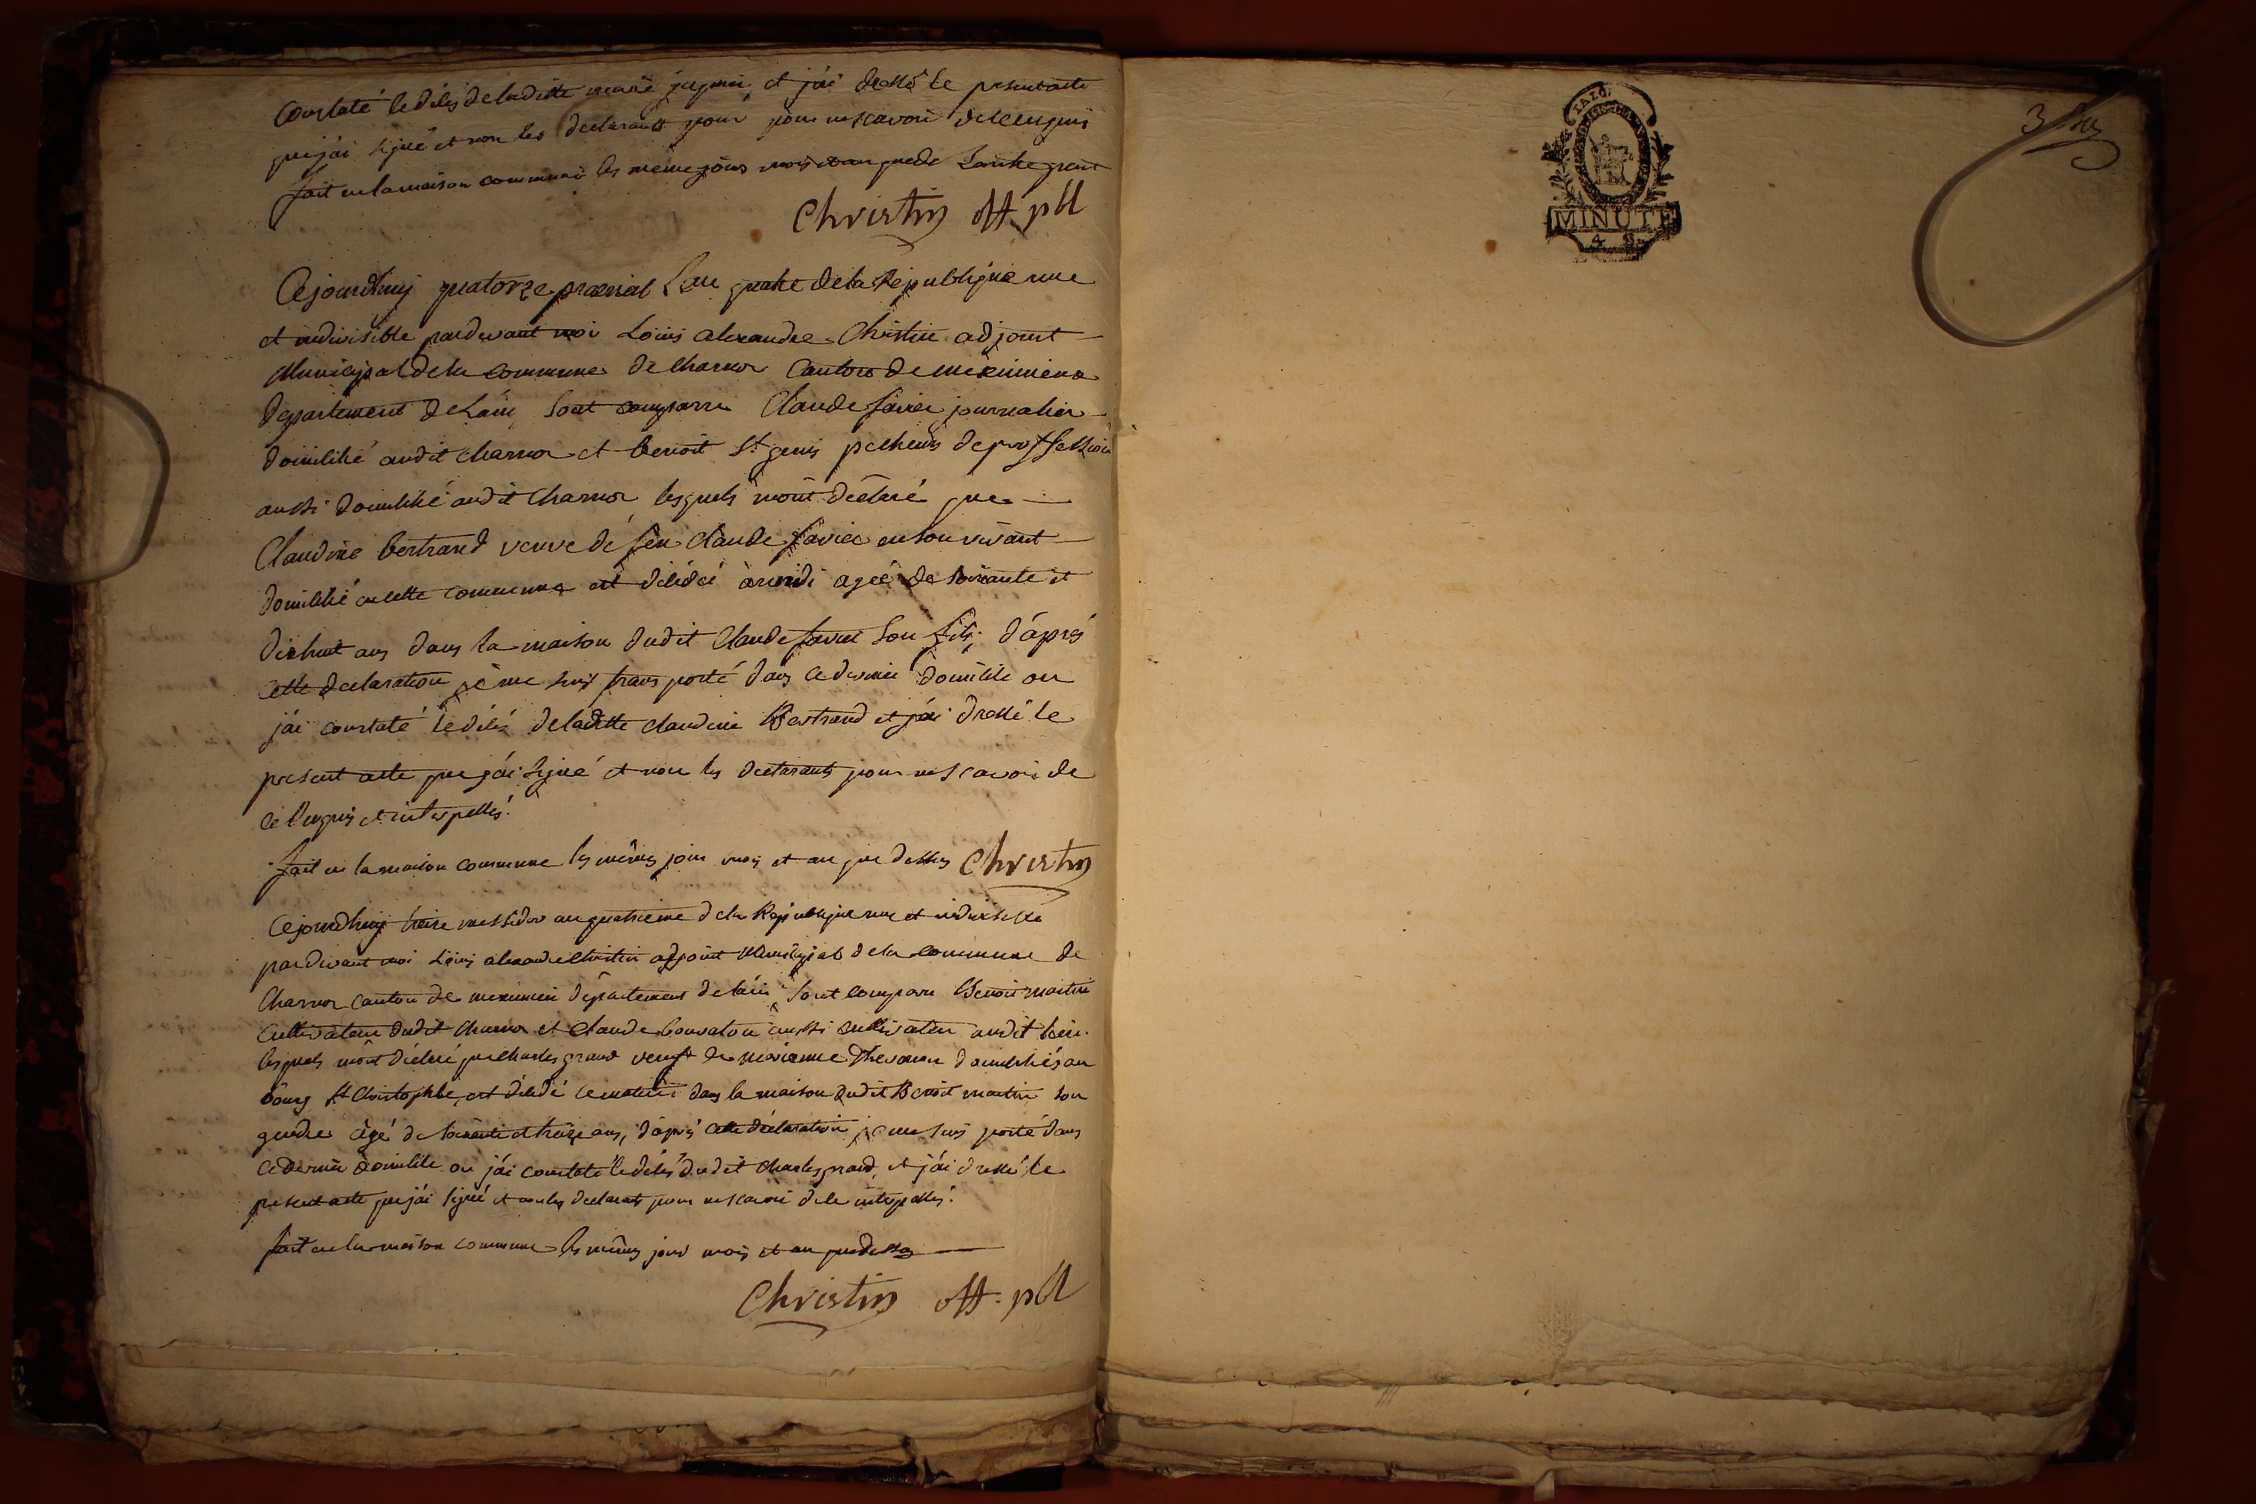 Constaté le décès de laditte marie et j'ai dressé le present acte
que j'ai signé et non les declarants pour ne scavoir de ce enquis
fait en la maison commune les meme jour mois et an que de
Christin off. pbl
Cejourdhuy quatorze prairial L'an quatre de la Republique une
et indivisible pardevant moi Louis alexandre Christin adjoint
Municipal de la commune de Charnoz Canton de meximieux
departement de L'ain, sont comparu Claude favier journalier
domicilié audit charnoz et benoit St. genis pecheur de proffession
aussi domicilié audit Charnoz lesquels m'ont déclaré que
Claudine bertrand veuve de feu Claude favier en son vivant
domicilié en cette commune est décédée à midi agée de soixante et
dixhuit ans dans la maison dudit Claude favier son fils, d'après
cette declaration je me suis transporté dans ce dernier domicile ou
j'ai constaté le décès de laditte Claudine Bertrand et j'ai dressé le
present acte que j'ai signé et non les declarants pour ne scavoir de
ce enquis et interpellés.
fait en la maison commune les mêmes jour mois et an que dessus Christin
Cejourdhuy treize messidor an quatrieme de la Republique une et indivisible
pardevant moi Louis alexandre Christin adjoint Municipal de la commune de
Charnoz canton de meximieu département de l'ain, sont comparu Benoit martin
Cultivateur dudit Charnoz et Claude bouvaton aussi cultivateur audit lieu.
lesquels m'ont déclaré que Charles grand veuf de marianne domiciliés au
bourg St Christophle, est décédé ce matin dans la maison dudit Benoit martin son
gendre agé de soixante et treize ans, d'après cette déclaration je me suis porté dans
ce dernier domicile ou j'ai constaté le décès dudit Charles grand, et j'ai dressé le
present acte que j'ai signé et non les declarants pour ne scavoir de ce interpellés.
fait en la maison commune les mêmes jour mois et an que dessus
Christin off. pbl
MINUTE
3